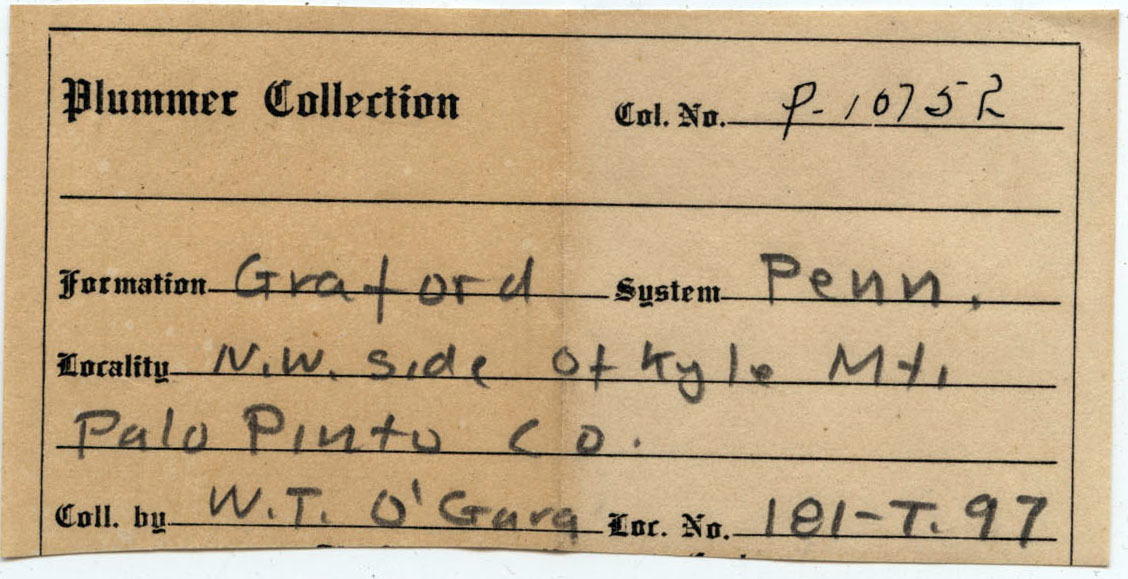 Plummer Collection Col. No. P-10752
Formation Graford System Penn.
Locality N.W. side of Kyle Mt.
Palo Pinto Co.
Coll. by W.T. O'Gara Loc. No. 181-T-97